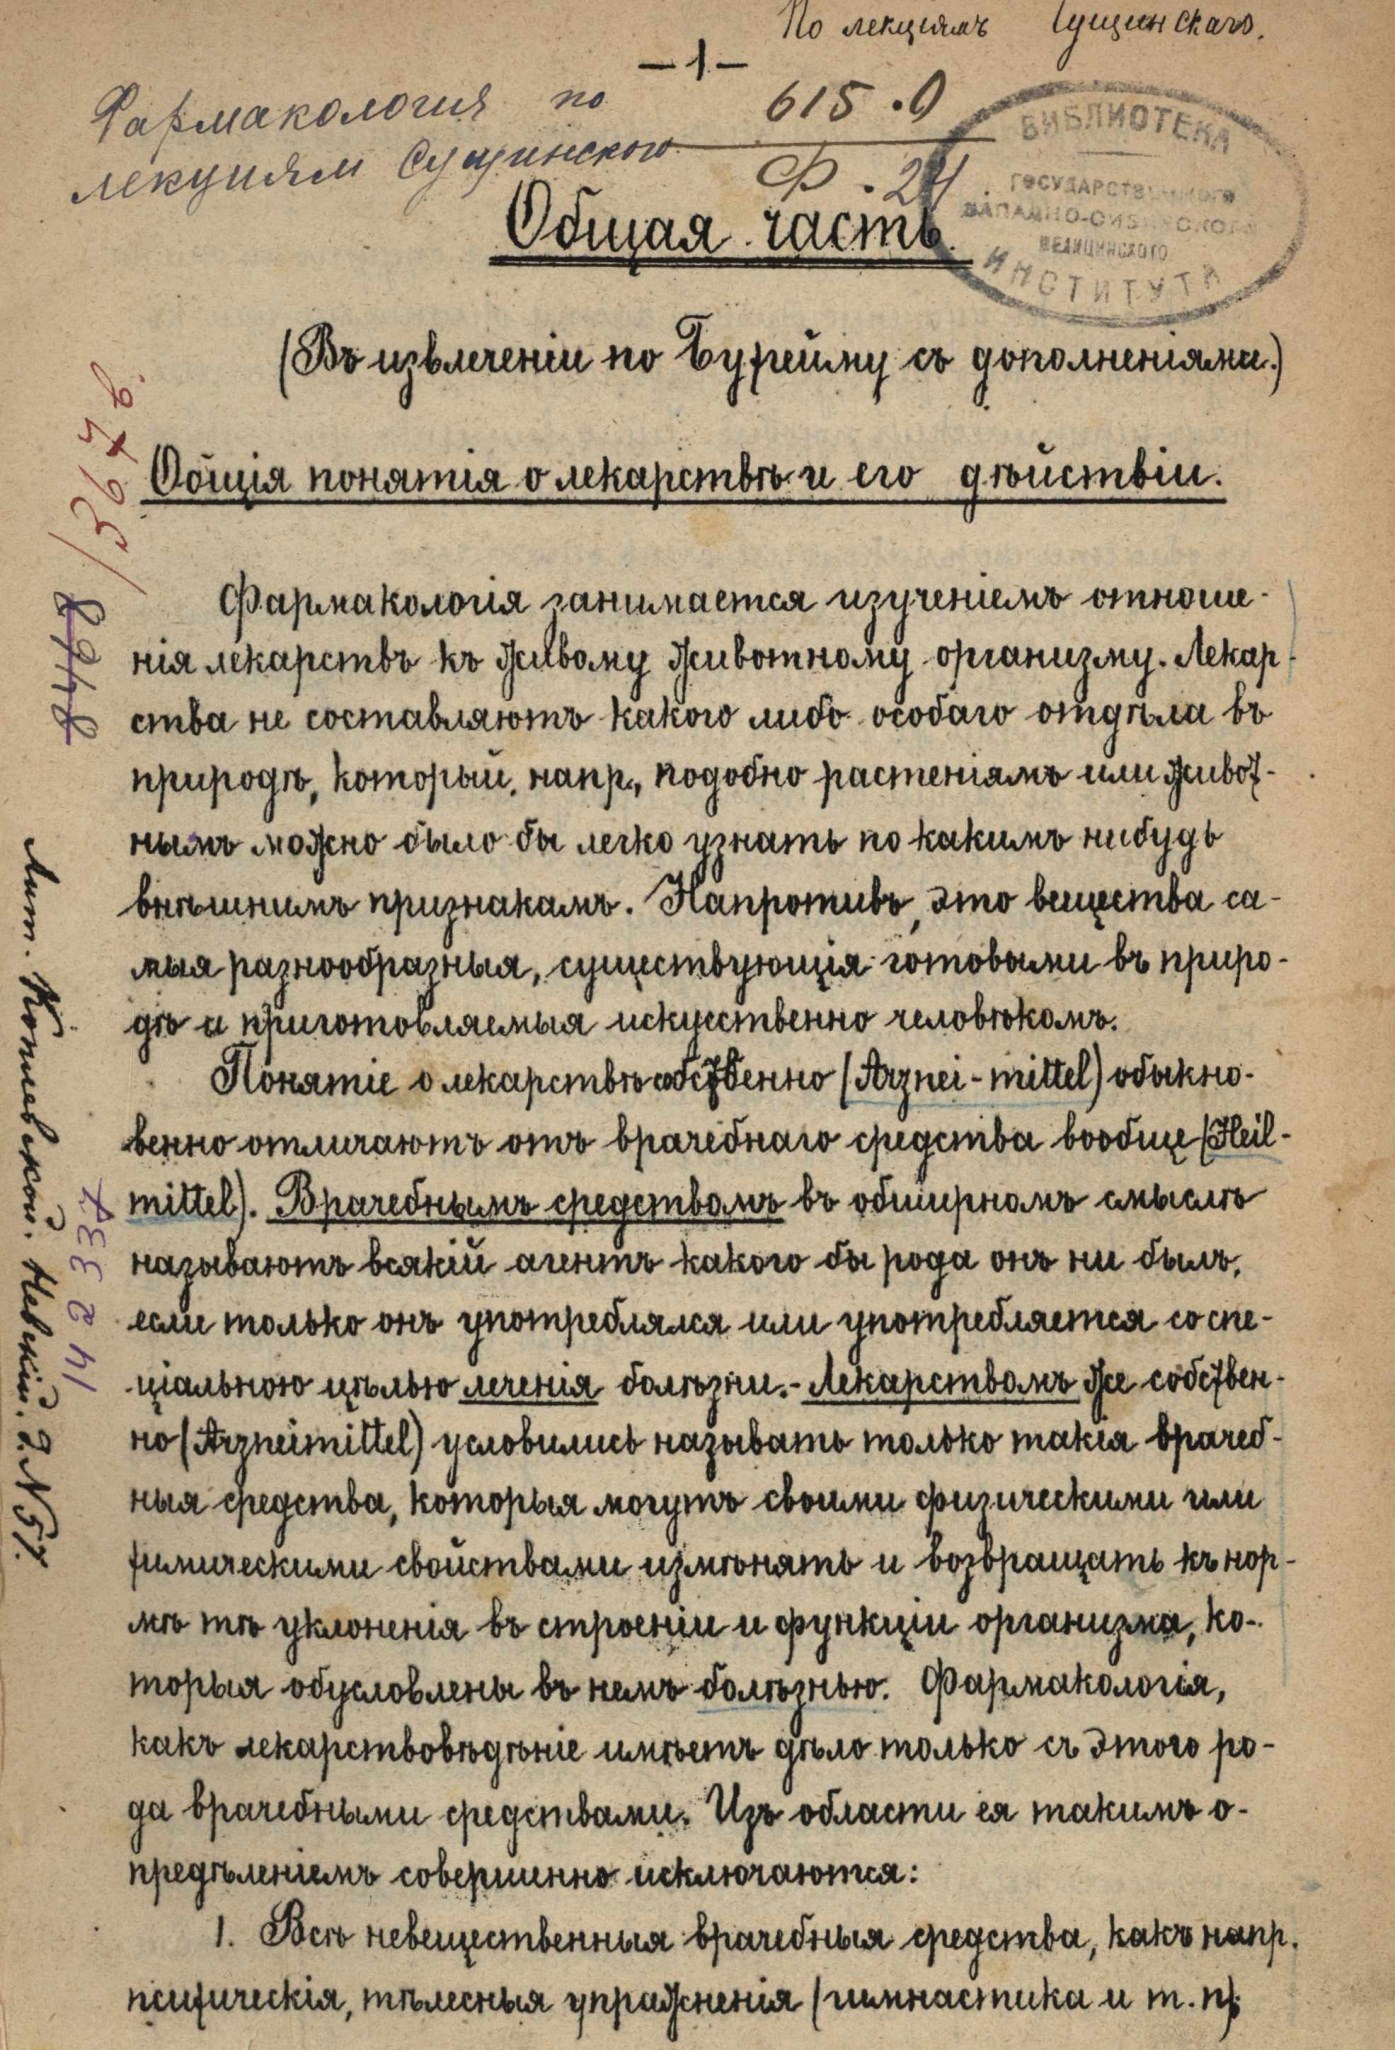 По лекціямъ Сущинскаго.
— 1 —
Фармакология по
лекциям Сущинского
615.0
Ф. 24
БИБЛИОТЕКА
ГОСУДАРСТВЕННОГО
ЗАПАДНО-СИБИРСКОГО
МЕДИЦИНСКОГО
ИНСТИТУТА
Общая часть.
(Въ извлеченіи по Бухгейму съ дополненіями.)
Общія понятія о лекарствѣ и его дѣйствіи.
Фармакологія занимается изученіемъ отноше-
нія лекарствъ къ живому животному организму. Лекар-
ства не составляютъ какого либо особаго отдѣла въ
природѣ, который, напр., подобно растеніямъ или живот-
нымъ можно было бы легко узнать по какимъ нибудь
внѣшнимъ признакамъ. Напротивъ, это вещества са-
мыя разнообразныя, существующія готовыми въ приро-
дѣ и приготовляемыя искусственно человѣкомъ.
Понятіе о лекарствѣ собственно (Arznei-mittel) обыкно-
венно отличаютъ отъ врачебнаго средства вообще (Heil-
mittel). Врачебнымъ средствомъ въ обширномъ смыслѣ
называютъ всякій агентъ какого бы рода онъ ни былъ,
если только онъ употреблялся или употребляется со спе-
ціальною цѣлью леченія болѣзни.- Лекарствомъ же собствен-
но (Arzneimittel) условились называть только такія врачеб-
ныя средства, которыя могутъ своими физическими или
химическими свойствами измѣнять и возвращать къ нор-
мѣ тѣ уклоненія въ строеніи и функціи организма, ко-
торыя обусловлены въ немъ болѣзнью. Фармакологія,
какъ лекарствовѣдѣніе имѣетъ дѣло только съ этого ро-
да врачебными средствами. Изъ области ея такимъ о-
предѣленіемъ совершенно исключаются:
1. Всѣ невещественныя врачебныя средства, какъ напр.
психическія, тѣлесныя упражненія (гимнастика и т. п.)
8468
142337
Невскій. д. № 57.